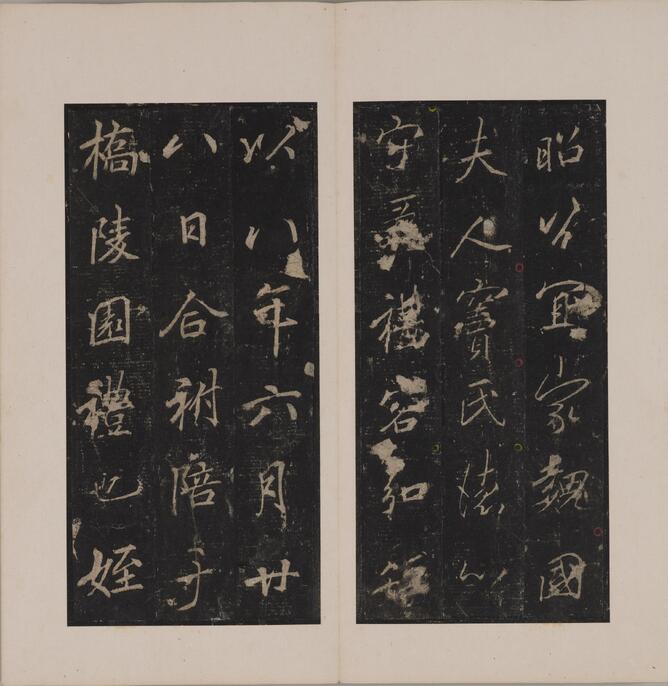 昭以宜家魏國
夫人竇氏
守容
以八年六月廿
八日合祔陪于
橋陵園禮也姪